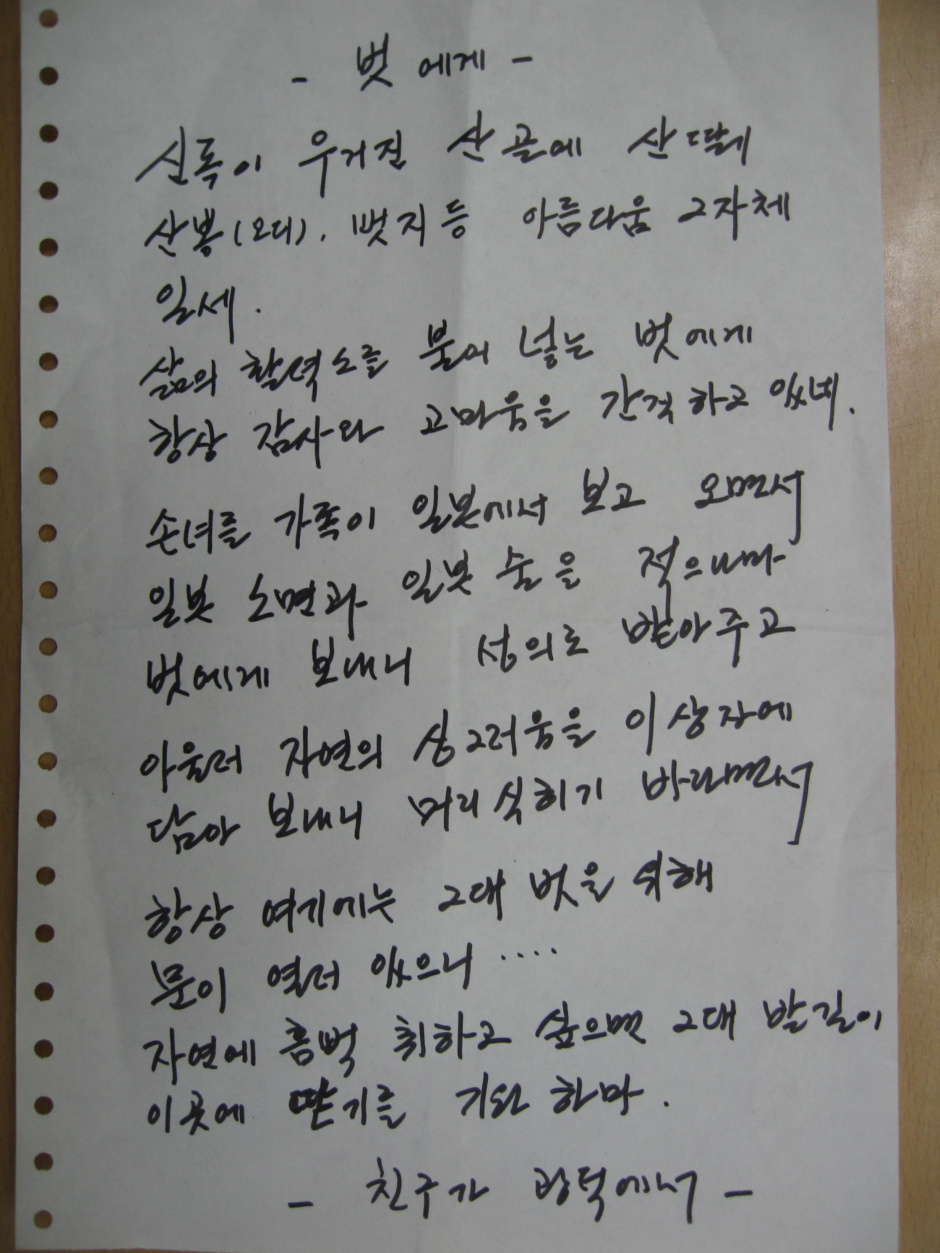 - 벗에게 -
신록이 우거진 산골에 산딸기
산뽕(오디), 벗지 등 아름다움 그자체
일세.
삶의 활력소를 불어 넣는 벗에게
항상 감사와 고마움을 간직하고 있네.
손녀를 가족이 일본에서 보고 오면서
일본 소면과 일본 술을 적으나마
벗에게 보내니 성의로 받아주고
아울러 자연의 싱그러움을 이 상자에
담아 보내니 머리 식히기 바라면서
항상 여기에는 그대 벗을 위해
문이 열려 있으니 ....
자연에 흠뻑 취하고 싶으면 그대 발길이
이곳에 닫기를 기대 하마.
- 친구가 광덕에서 -